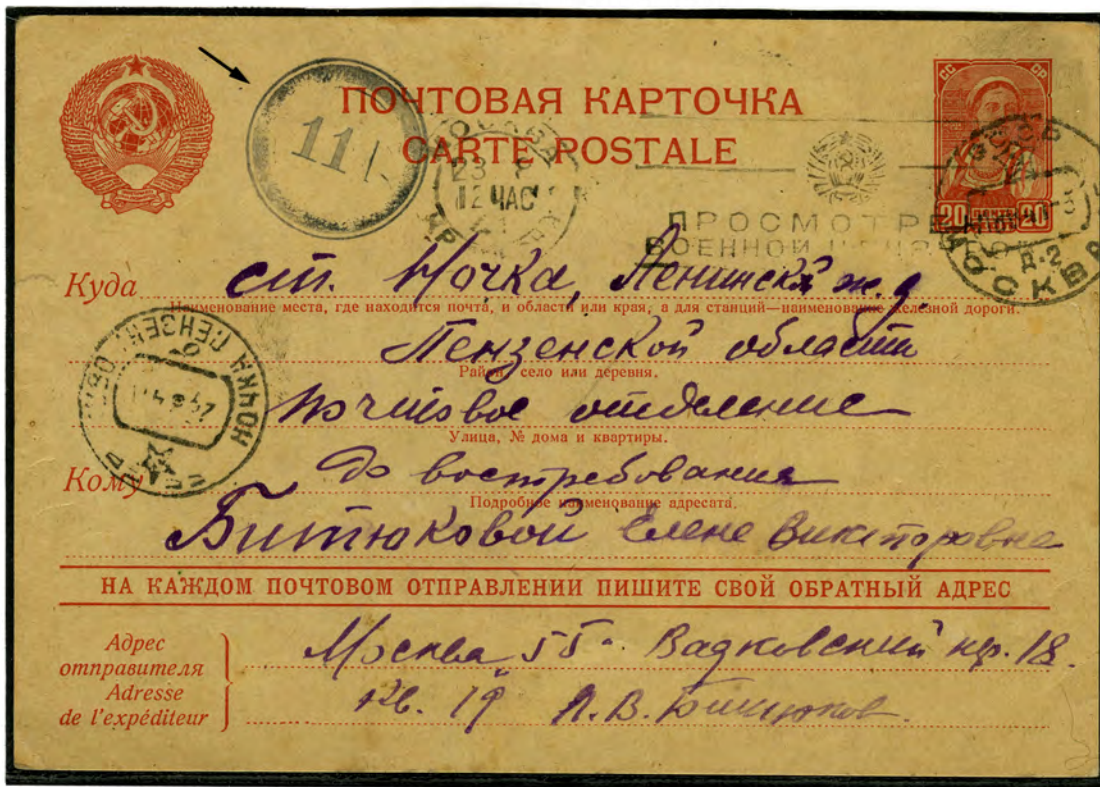 ПОЧТОВАЯ КАРТОЧКА
CARTE POSTALE
11
СС СР
20 20
МОСКВА
23
12 ЧАС
ПРОСМОТРЕНО
ВОЕННОЙ ЦЕНЗУРОЙ
МОСКВА
Д-2
Куда ст. Ночка, Ленинской ж. д.
Наименование места, где находится почта, и области или края, а для станций—наименование железной дороги.
Пензенской области
Район, село или деревня.
Почтовое отделение
Улица, № дома и квартиры.
НОЧКА ПЕНЗЕН. ОБЛ.
Кому до востребования
Подробное наименование адресата.
Битюковой Елене Викторовне
НА КАЖДОМ ПОЧТОВОМ ОТПРАВЛЕНИИ ПИШИТЕ СВОЙ ОБРАТНЫЙ АДРЕС
Адрес
отправителя
Adresse
de l'expéditeur
Москва 55 Вадковский пер. 18.
кв. 19 Битюков.